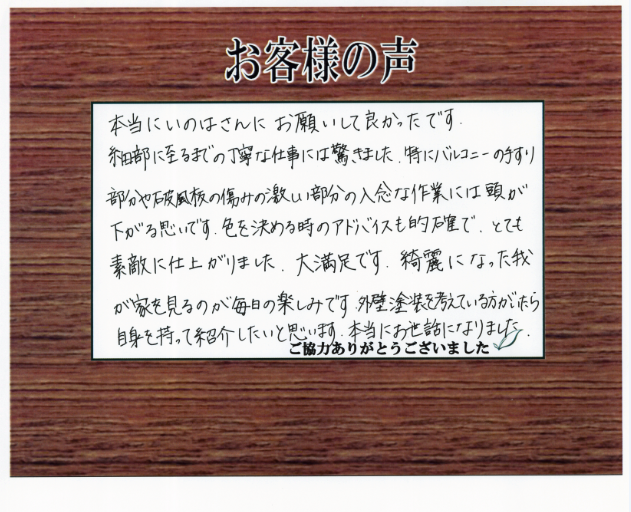 お客様の声
本当にいのはさんに お願いして良かったです.
細部に至るまでの丁寧な仕事には驚きました. 特にバルコニーの手すり
部分や破風板の傷みの激しい部分の入念な作業には頭が
下がる思いです. 色を決める時のアドバイスも的確で. とても
素敵に仕上がりました. 大満足です. 綺麗になった我
が家を見るのが毎日の楽しみです. 外壁塗装を考えている方がいたら
自身を持って紹介したいと思います. 本当にお世話になりました.
ご協力ありがとうございました